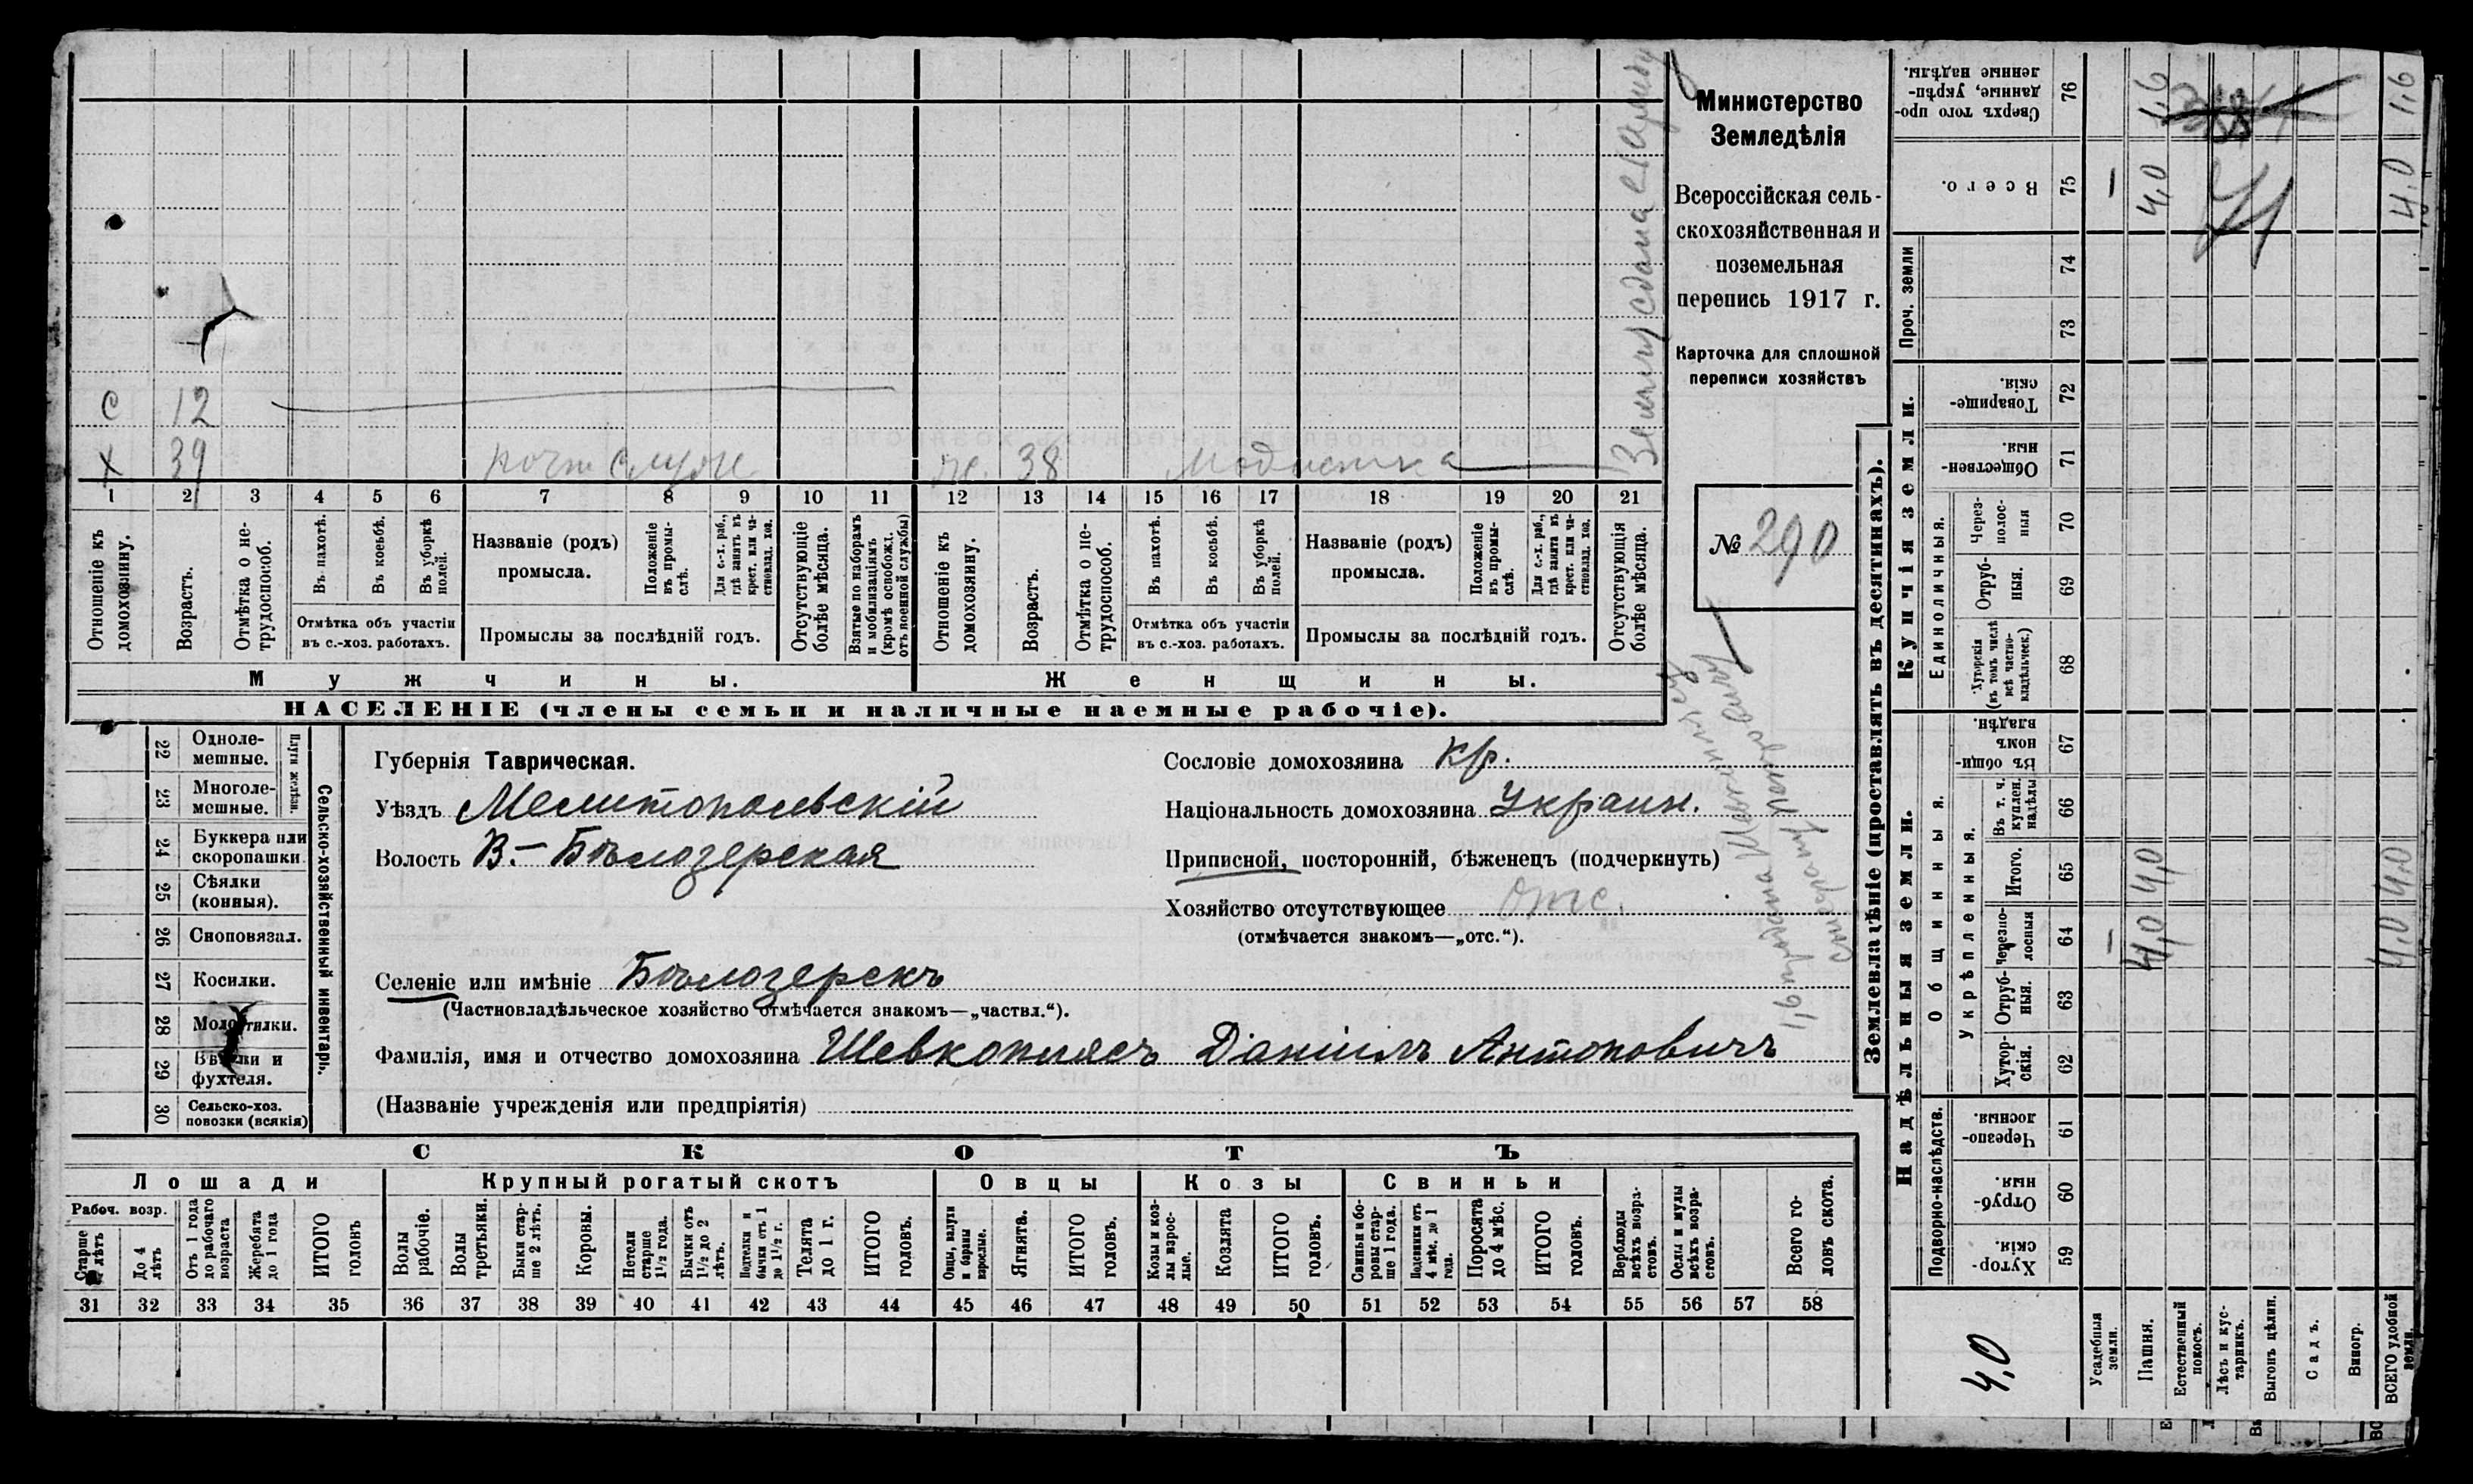 Министерство
Земледѣлія
Всероссійская сель-
скохозяйственная и
поземельная
перепись 1917 г.
Карточка для сплошной
переписи хозяйствъ
№ 290
с 12
х 39 почт служ ж. 38 Модистка
1 2 3 4 5 6 7 8 9 10 11 12 13 14 15 16 17 18 19 20 21
Отношеніе къ домохозяину.
Возрастъ.
Отмѣтка о не-трудоспособ.
Въ пахотѣ.
Въ косьбѣ.
Въ уборкѣ полей.
Отмѣтка объ участіи
въ с.-хоз. работахъ.
Названіе (родъ)
промысла.
Положеніе въ промы-слѣ.
Для с.-х. раб., гдѣ занятъ въ крест. или ча-стновлад. хоз.
Промыслы за послѣдній годъ.
Отсутствующіе болѣе мѣсяца.
Взятые по наборамъ и мобилизаціямъ (кромѣ освобожд. отъ военной службы)
Отношеніе къ домохозяину.
Возрастъ.
Отмѣтка о не-трудоспособ.
Въ пахотѣ.
Въ косьбѣ.
Въ уборкѣ полей.
Отмѣтка объ участіи
въ с.-хоз. работахъ.
Названіе (родъ)
промысла.
Положеніе въ промы-слѣ.
Для с.-х. раб., гдѣ занята въ крест. или ча-стновлад. хоз.
Промыслы за послѣдній годъ.
Отсутствующія болѣе мѣсяца.
Мужчины. Женщины.
НАСЕЛЕНІЕ (члены семьи и наличные наемные рабочіе).
Сельско-хозяйственный инвентарь.
Плуги желѣзн.
22 Одноле-
мешные.
23 Многоле-
мешные.
24 Буккера или
скоропашки
25 Сѣялки
(конныя).
26 Сноповязал.
27 Косилки.
28 Молотилки.
29 Вѣялки и
фухтеля.
30 Сельско-хоз.
повозки (всякія)
Губернія Таврическая.
Уѣздъ Мелитопольскій
Волость В.-Бѣлозерская
Сословіе домохозяина кр.
Національность домохозяина Украин.
Приписной, посторонній, бѣженецъ (подчеркнуть)
Хозяйство отсутствующее отс.
(отмѣчается знакомъ—„отс.“).
Селеніе или имѣніе Бѣлозерскъ
(Частновладѣльческое хозяйство отмѣчается знакомъ—„частвл.“).
Фамилія, имя и отчество домохозяина Шевкоплясъ Даніилъ Антоновичъ
(Названіе учрежденія или предпріятія)
СКОТЪ
Лошади Крупный рогатый скотъ Овцы Козы Свиньи
Рабоч. возр.
Старше лѣтъ
До 4 лѣтъ
Отъ 1 года до рабочаго возраста
Жеребята до 1 года
ИТОГО головъ
Волы рабочіе.
Волы третьяки.
Быки стар-ше 2 лѣтъ.
Коровы.
Нетели старше 1½ года.
Бычки отъ 1½ до 2 лѣтъ.
Подтелки и бычки отъ 1 до 1½ г.
Телята до 1 г.
ИТОГО головъ.
Овцы, валухи и бараны взрослые.
Ягнята.
ИТОГО головъ.
Козы и коз-лы взрос-лые.
Козлята
ИТОГО головъ.
Свиньи и бо-ровы стар-ше 1 года.
Подсвинки отъ 4 мѣс. до 1 года.
Поросята до 4 мѣс.
ИТОГО головъ.
Верблюды всѣхъ возра-стовъ.
Ослы и мулы всѣхъ возра-стовъ.
Всего го-ловъ скота.
31 32 33 34 35 36 37 38 39 40 41 42 43 44 45 46 47 48 49 50 51 52 53 54 55 56 57 58
Землевладѣніе (проставлять въ десятинахъ).
Надѣльныя земли.
Купчія земли.
Проч. земли
Подворно-наслѣдств.
Общинныя.
Укрѣпленныя.
Единоличныя.
59 Хутор-скія.
60 Отруб-ныя.
61 Черезпо-лосныя.
62 Хутор-скія.
63 Отруб-ныя.
64 Черезпо-лосныя
65 Итого.
66 Въ т. ч. куплен. надѣлы
67 Въ общи-номъ владѣн.
68 Хуторскія (въ томъ числѣ всѣ частно-владѣльческ.)
69 Отруб-ныя.
70 Через-полос-ныя
71 Обществен-ныя.
72 Товарище-скія.
73
74
75 Всего.
76 Сверхъ того про-данные, укрѣп-ленные надѣлы.
4,0
Усадебныя земли. — —
Пашня. 4,0 4,0 4,0 1,6
Естественный покосъ.
Лѣсъ и кус-тарникъ.
Выгонъ цѣлин.
Садъ.
Виногр.
ВСЕГО удобной земли. 4,0 4,0 4,0 1,6